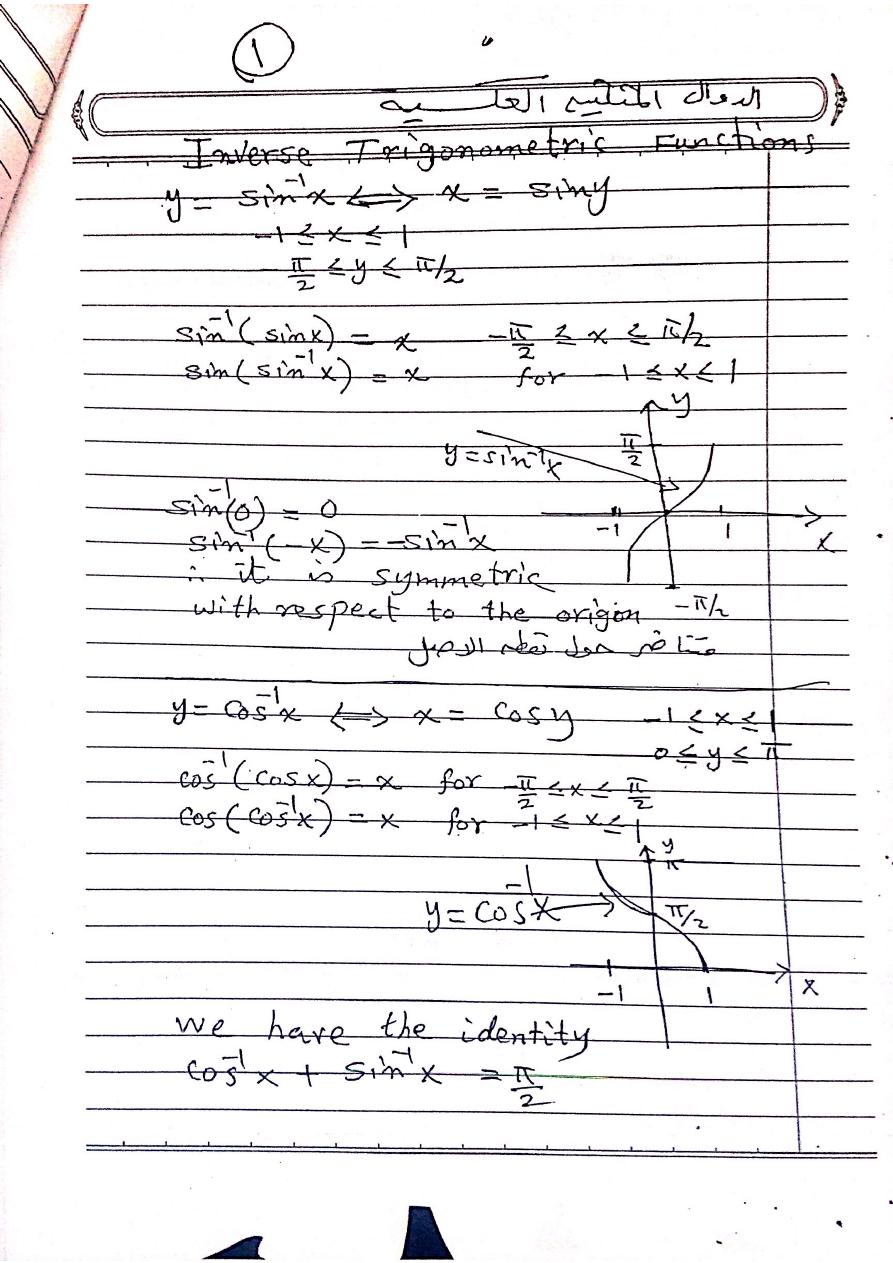 1
الدوال المثلثية العكسية
Inverse Trigonometric Functions
y = sin⁻¹x ⟺ x = sin y
-1 ≤ x ≤ 1
π/2 ≤ y ≤ π/2
sin⁻¹(sin x) = x -π/2 ≤ x ≤ π/2
sin(sin⁻¹x) = x for -1 ≤ x ≤ 1
y
π/2
y = sin⁻¹x
sin⁻¹(0) = 0
-1 1 x
sin⁻¹(-x) = -sin⁻¹x
∴ it is symmetric
with respect to the origin -π/2
متناظر حول نقطة الاصل
y = cos⁻¹x ⟺ x = cos y -1 ≤ x ≤ 1
0 ≤ y ≤ π
cos⁻¹(cos x) = x for -π/2 ≤ x ≤ π/2
cos(cos⁻¹x) = x for -1 ≤ x ≤ 1
y
π
y = cos⁻¹x π/2
-1 1 x
we have the identity
cos⁻¹x + sin⁻¹x = π/2